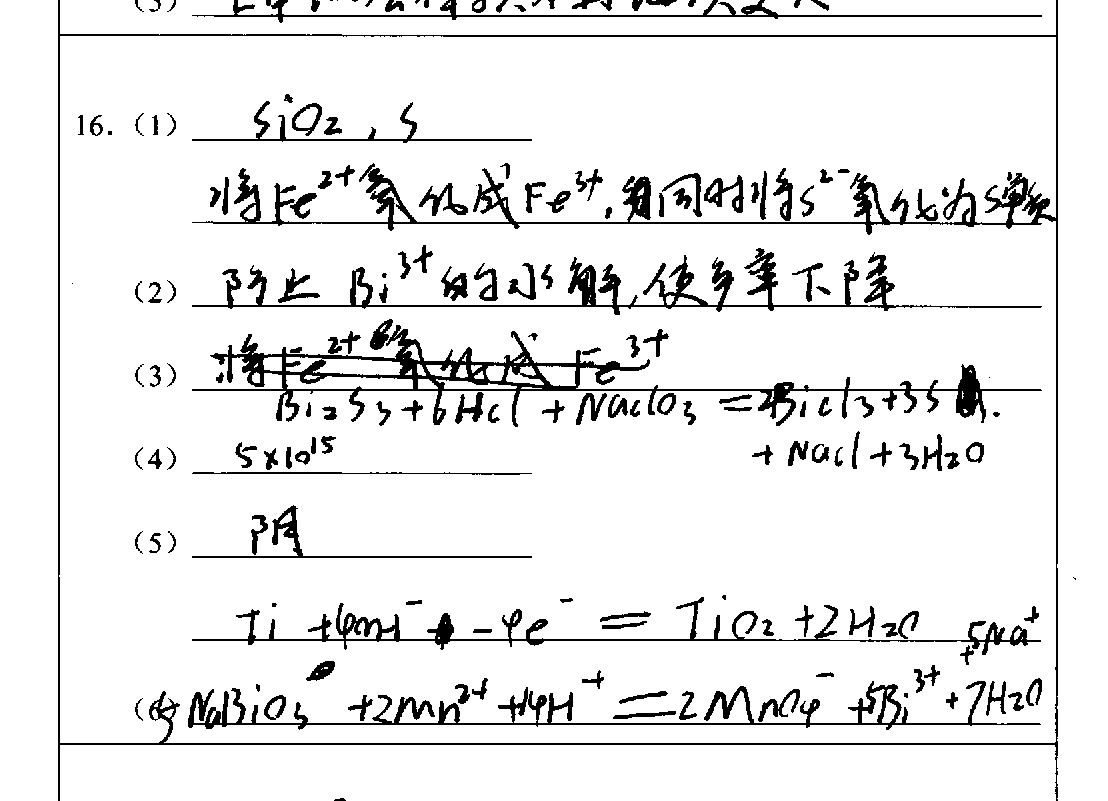 16.（1） SiO2 , S
将Fe2+氧化成Fe3+,同时将S2-氧化为S单质
（2） 防止Bi3+的水解,使多率下降
（3） 将Fe2+氧化成Fe3+
Bi2S3+6HCl+NaClO3=2BiCl3+3S
（4） 5×10^15 +NaCl+3H2O
（5） 阴
Ti +4OH- -4e- = TiO2+2H2O
+5Na+
5NaBiO3 +2Mn2+ +14H+ =2MnO4- +5Bi3+ +7H2O